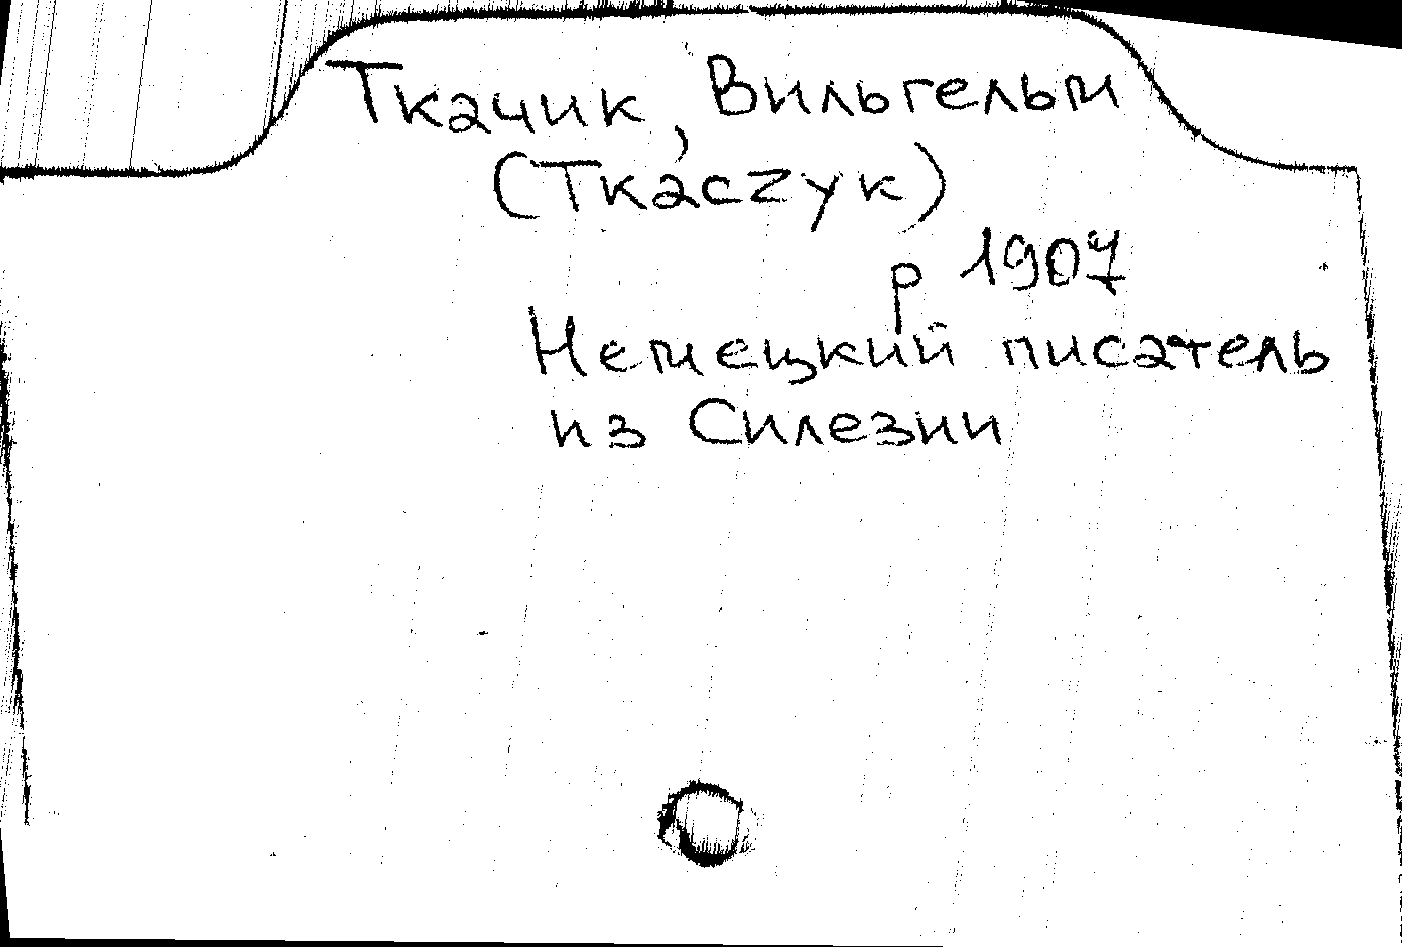 Ткачик, Вильгельм
(Tkaczyk)
р 1907
Немецкий писатель
из Силезии